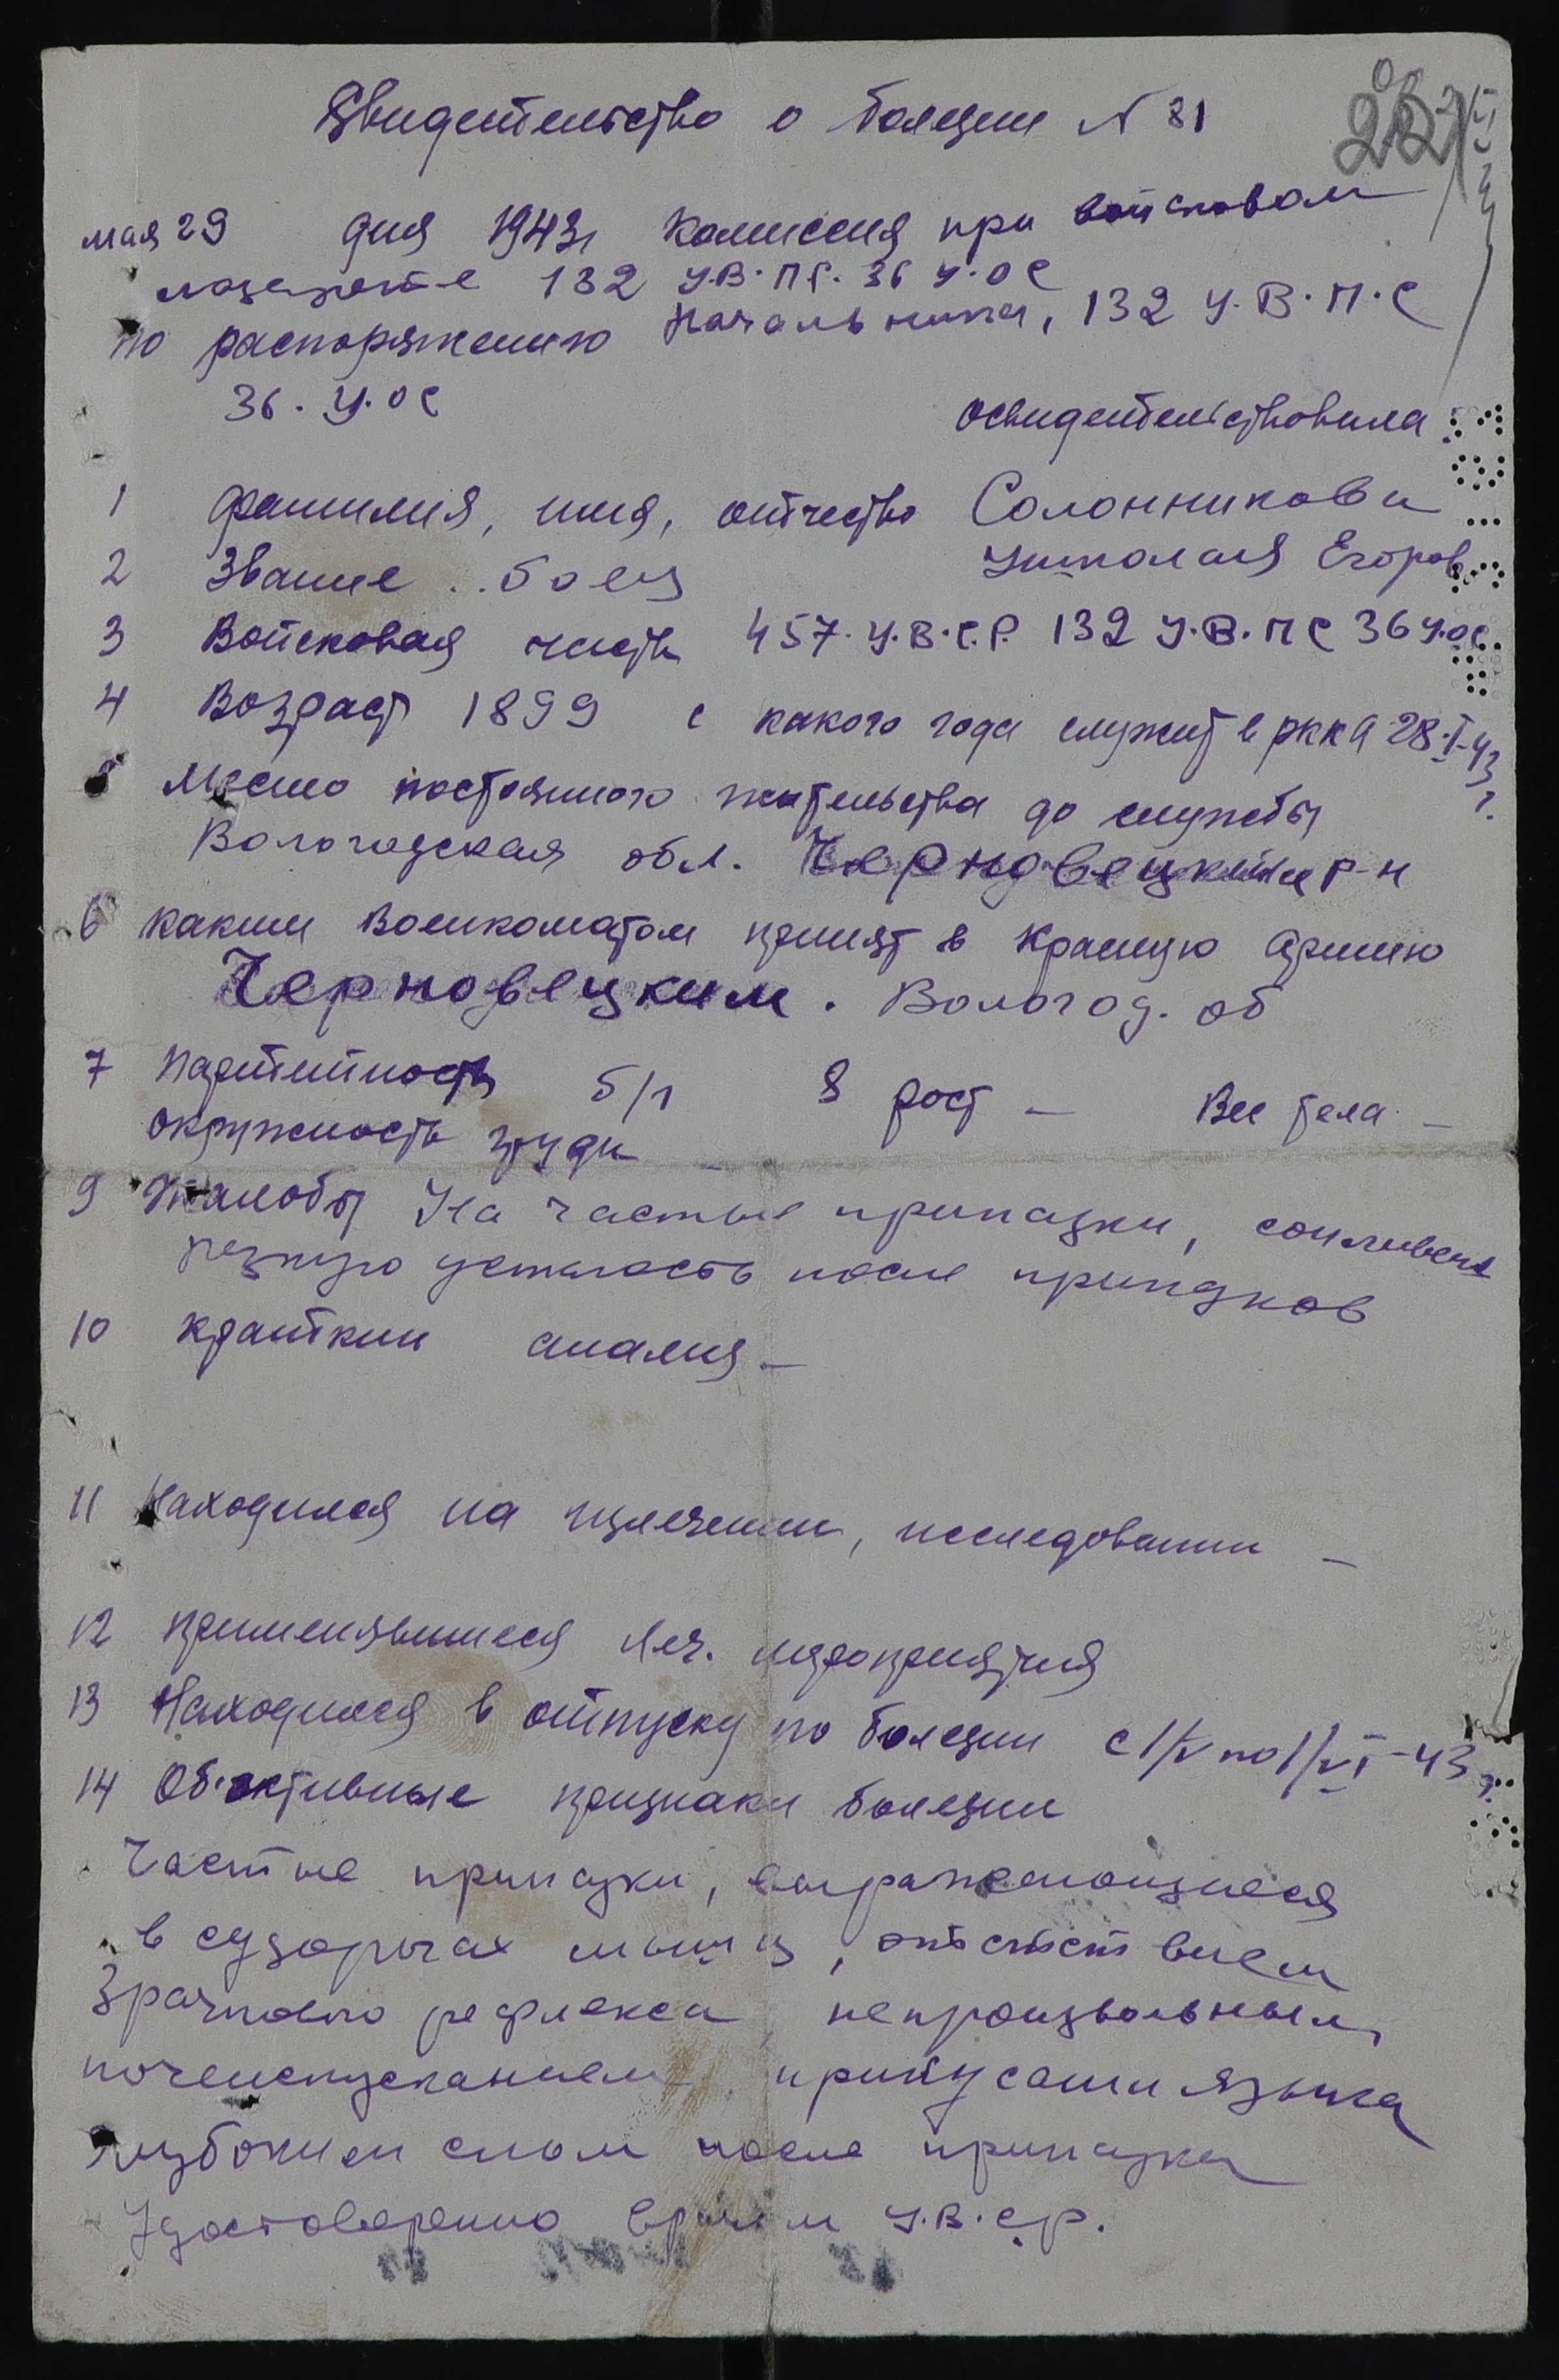 Свидетельство о болезни N 81
мая 29 дня 1943г комиссия при войсковом
лазарете 132 У.В.ПС. 36 У.ОС
по распоряжению Начальника, 132 У.В.П.С
36. У.ОС
освидетельствовала
1 фамилия, имя, отчество Солонникова
Николая Егоров.
2 Звание .. боец
3 Войсковая часть 457. У.В.С.Р. 132 У.В.ПС 36 У.ОС.
4 Возраст 1899 с какого года служит в РККА 28.I-43
г.
5 Место постоянного жительства до службы
Вологодская обл. Черновецкий р-н
6 каким Военкоматом принят в Красную Армию
Черновецким. Вологод. об
7 Партийность б/п 8 рост — Вес тела —
окружность груди —
9 Жалобы На частые припадки, сонливость
резкую усталость после припадков
10 Краткий анализ —
11 Находился на излечении, исследовании —
12 Применявшиеся леч. мероприятия
13 Находился в отпуску по болезни с 1/V по 1/VI-43 г.
14 Об'ективные признаки болезни
Частые припадки, выражающиеся
в судорогах мышц, отсутствием
Зрачкового рефлекса непроизвольным,
мочеиспусканием, прикусами языка
глубоким сном после припадка
Удостоверенно врачем У.В.С.Р.